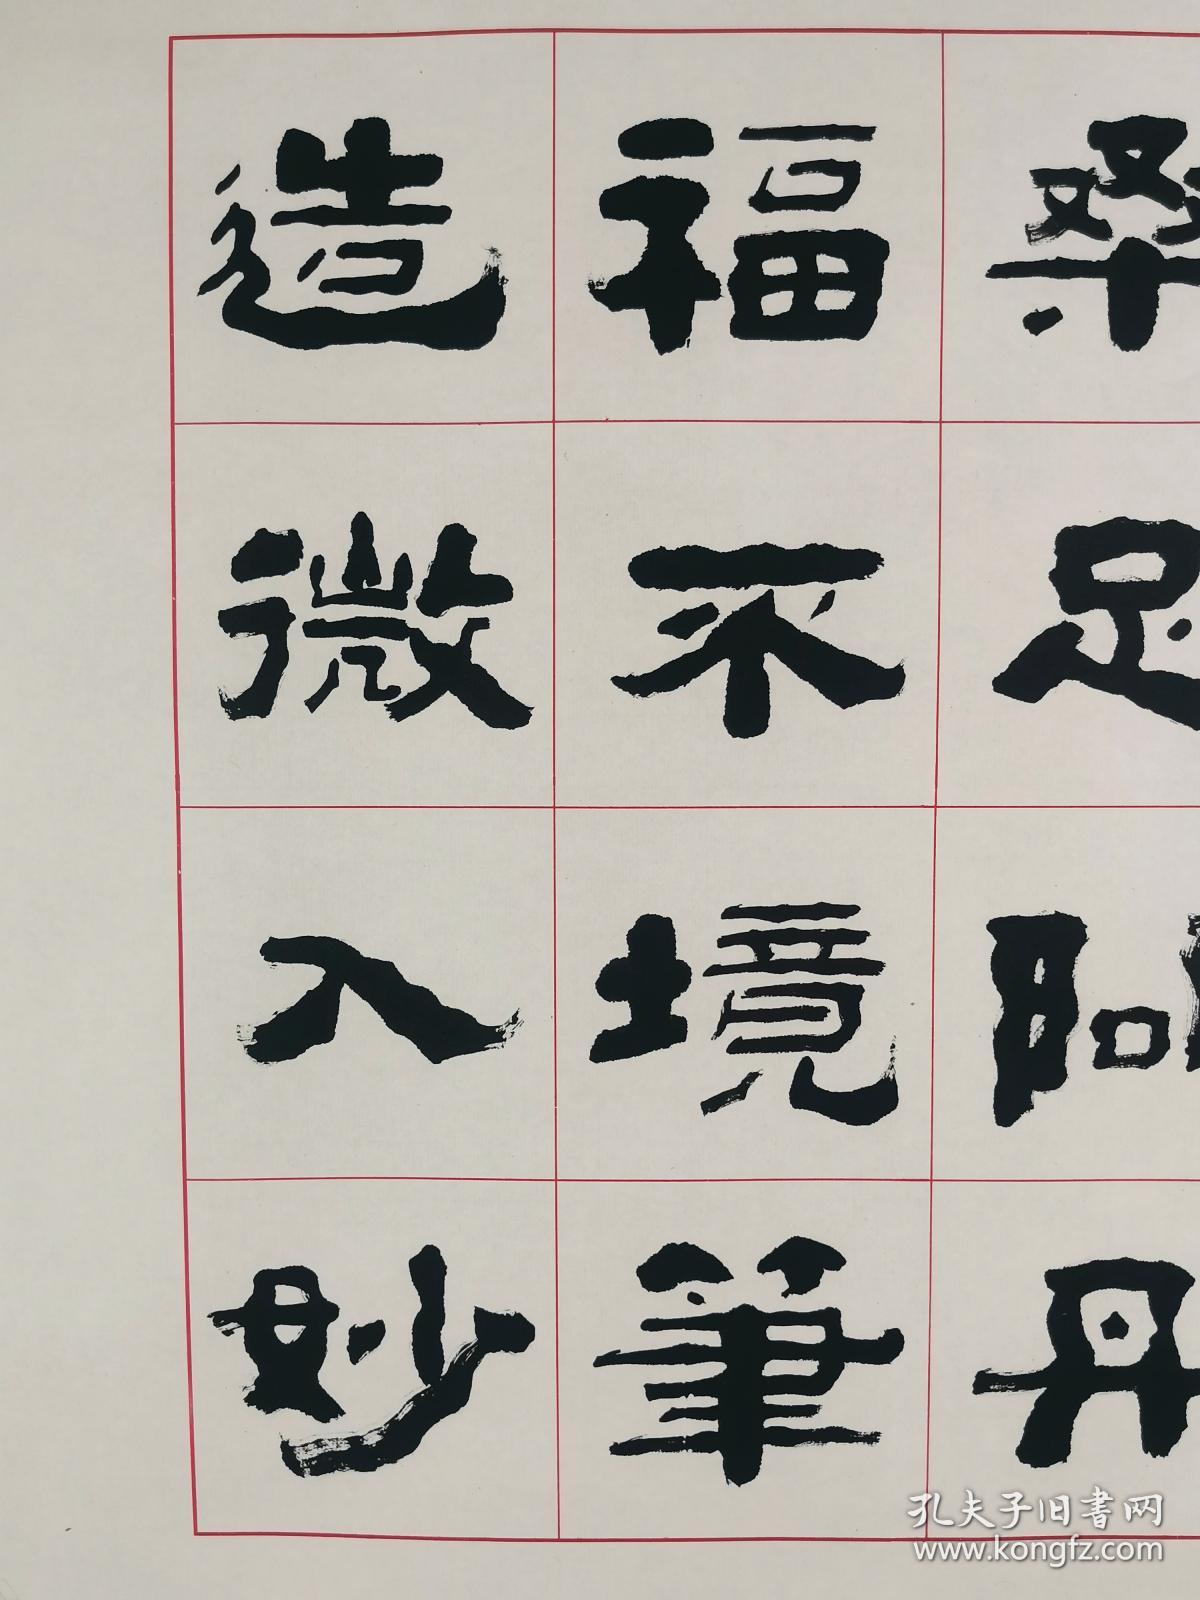 桑足問丹
福不境筆
造微入妙
孔夫子旧書网
www.kongfz.com